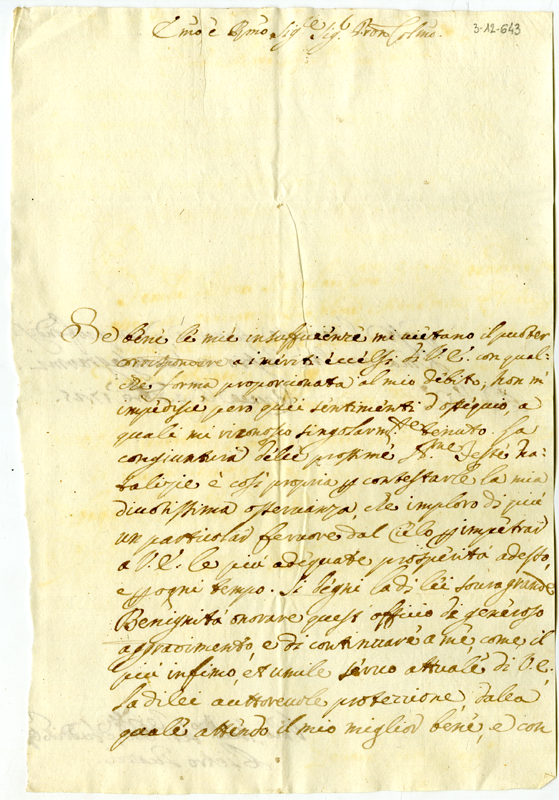 Emo è Rmo Sigre Sigr Pron Colmo.
3-12-643
Se bene le mie insufficienze mi vietano il potter
corrispondere a i meriti eccelsi di V.E. con qual:
che forma proporzionata al mio debito, non m'
impedisce pero quei sentimenti d'ossequio, a
quali mi riconosco singolarmte tenuto. La
congiuntura delle prossime Sme Feste na:
talizie è cosi propria p contestarle la mia
divotissima osservanza, che imploro di più
un particolar fervore dal Cielo p impetrar
a V.E. le più adequate prosperità adesso,
e p ogni tempo. Si degni la di lei sovragrande
Benignità onorare quest officio di generoso
aggradimento, e di continuare a me, come il
più infimo, et umile servo attuale di V.E.
la di lei auttorevole protezzione, dalla
quale attendo il mio miglior bene, e con